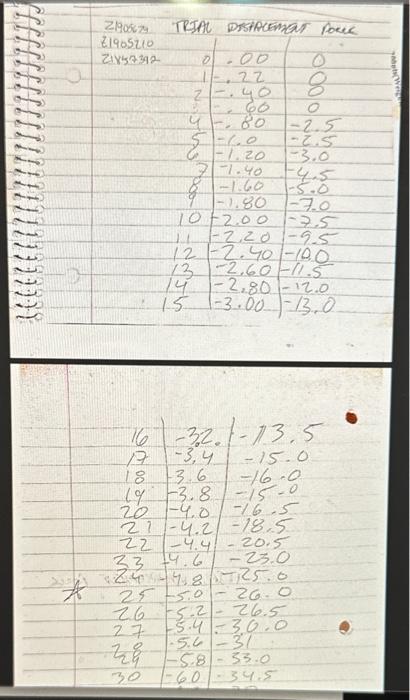 Z1905679 TRIAL DISPLACEMENT Force
Z1905210
Z1847392 0 .00 0
1 -.22 0
2 -.40 0
3 -.60 0
4 -.80 -2.5
5 -1.0 -2.5
6 -1.20 -3.0
7 -1.40 -4.5
8 -1.60 -5.0
9 -1.80 -7.0
10 -2.00 -7.5
11 -2.20 -9.5
12 -2.40 -10.0
13 -2.60 -11.5
14 -2.80 -12.0
15 -3.00 -13.0
16 -3.2. -13.5
17 -3.4 -15.0
18 -3.6 -16.0
19 -3.8 -15.0
20 -4.0 -16.5
21 -4.2 -18.5
22 -4.4 -20.5
23 -4.6 -23.0
24 -4.8 -25.0
25 -5.0 -26.0
26 -5.2 -26.5
27 -5.4 -30.0
28 -5.6 -31
29 -5.8 -33.0
30 -6.0 -34.5